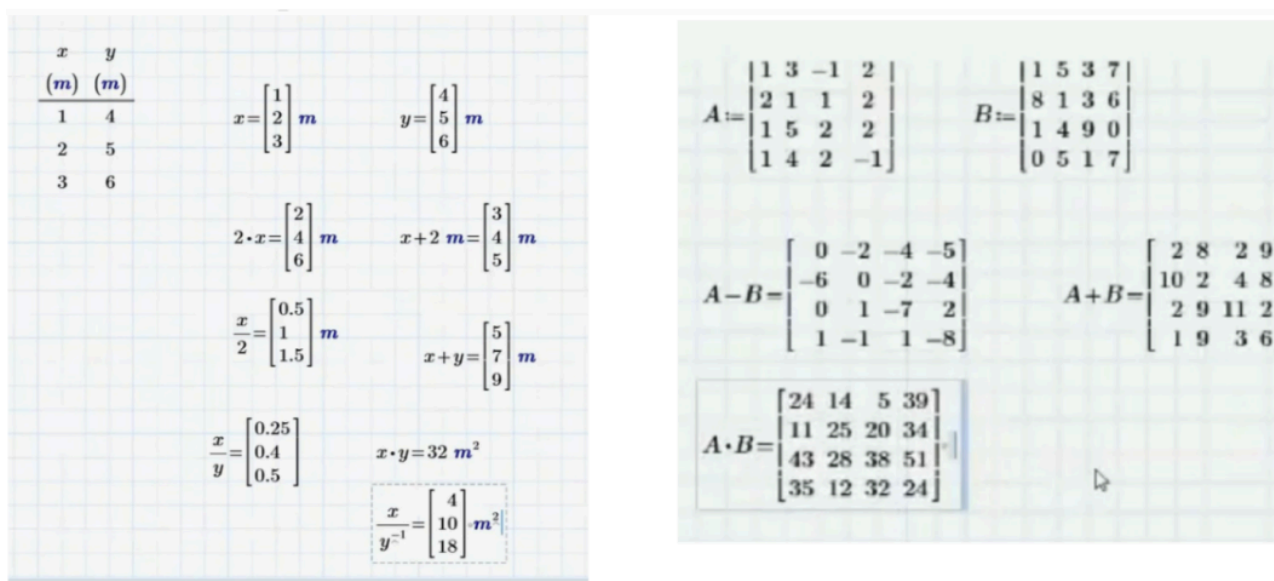 x y
(m) (m)
1 4
2 5
3 6
x=[1 2 3] m
y=[4 5 6] m
2·x=[2 4 6] m
x+2 m=[3 4 5] m
x/2=[0.5 1 1.5] m
x+y=[5 7 9] m
x/y=[0.25 0.4 0.5]
x·y=32 m²
x/y⁻¹=[4 10 18] m²
A:=
1 3 -1 2
2 1 1 2
1 5 2 2
1 4 2 -1
B:=
1 5 3 7
8 1 3 6
1 4 9 0
0 5 1 7
A-B=
0 -2 -4 -5
-6 0 -2 -4
0 1 -7 2
1 -1 1 -8
A+B=
2 8 2 9
10 2 4 8
2 9 11 2
1 9 3 6
A·B=
24 14 5 39
11 25 20 34
43 28 38 51
35 12 32 24